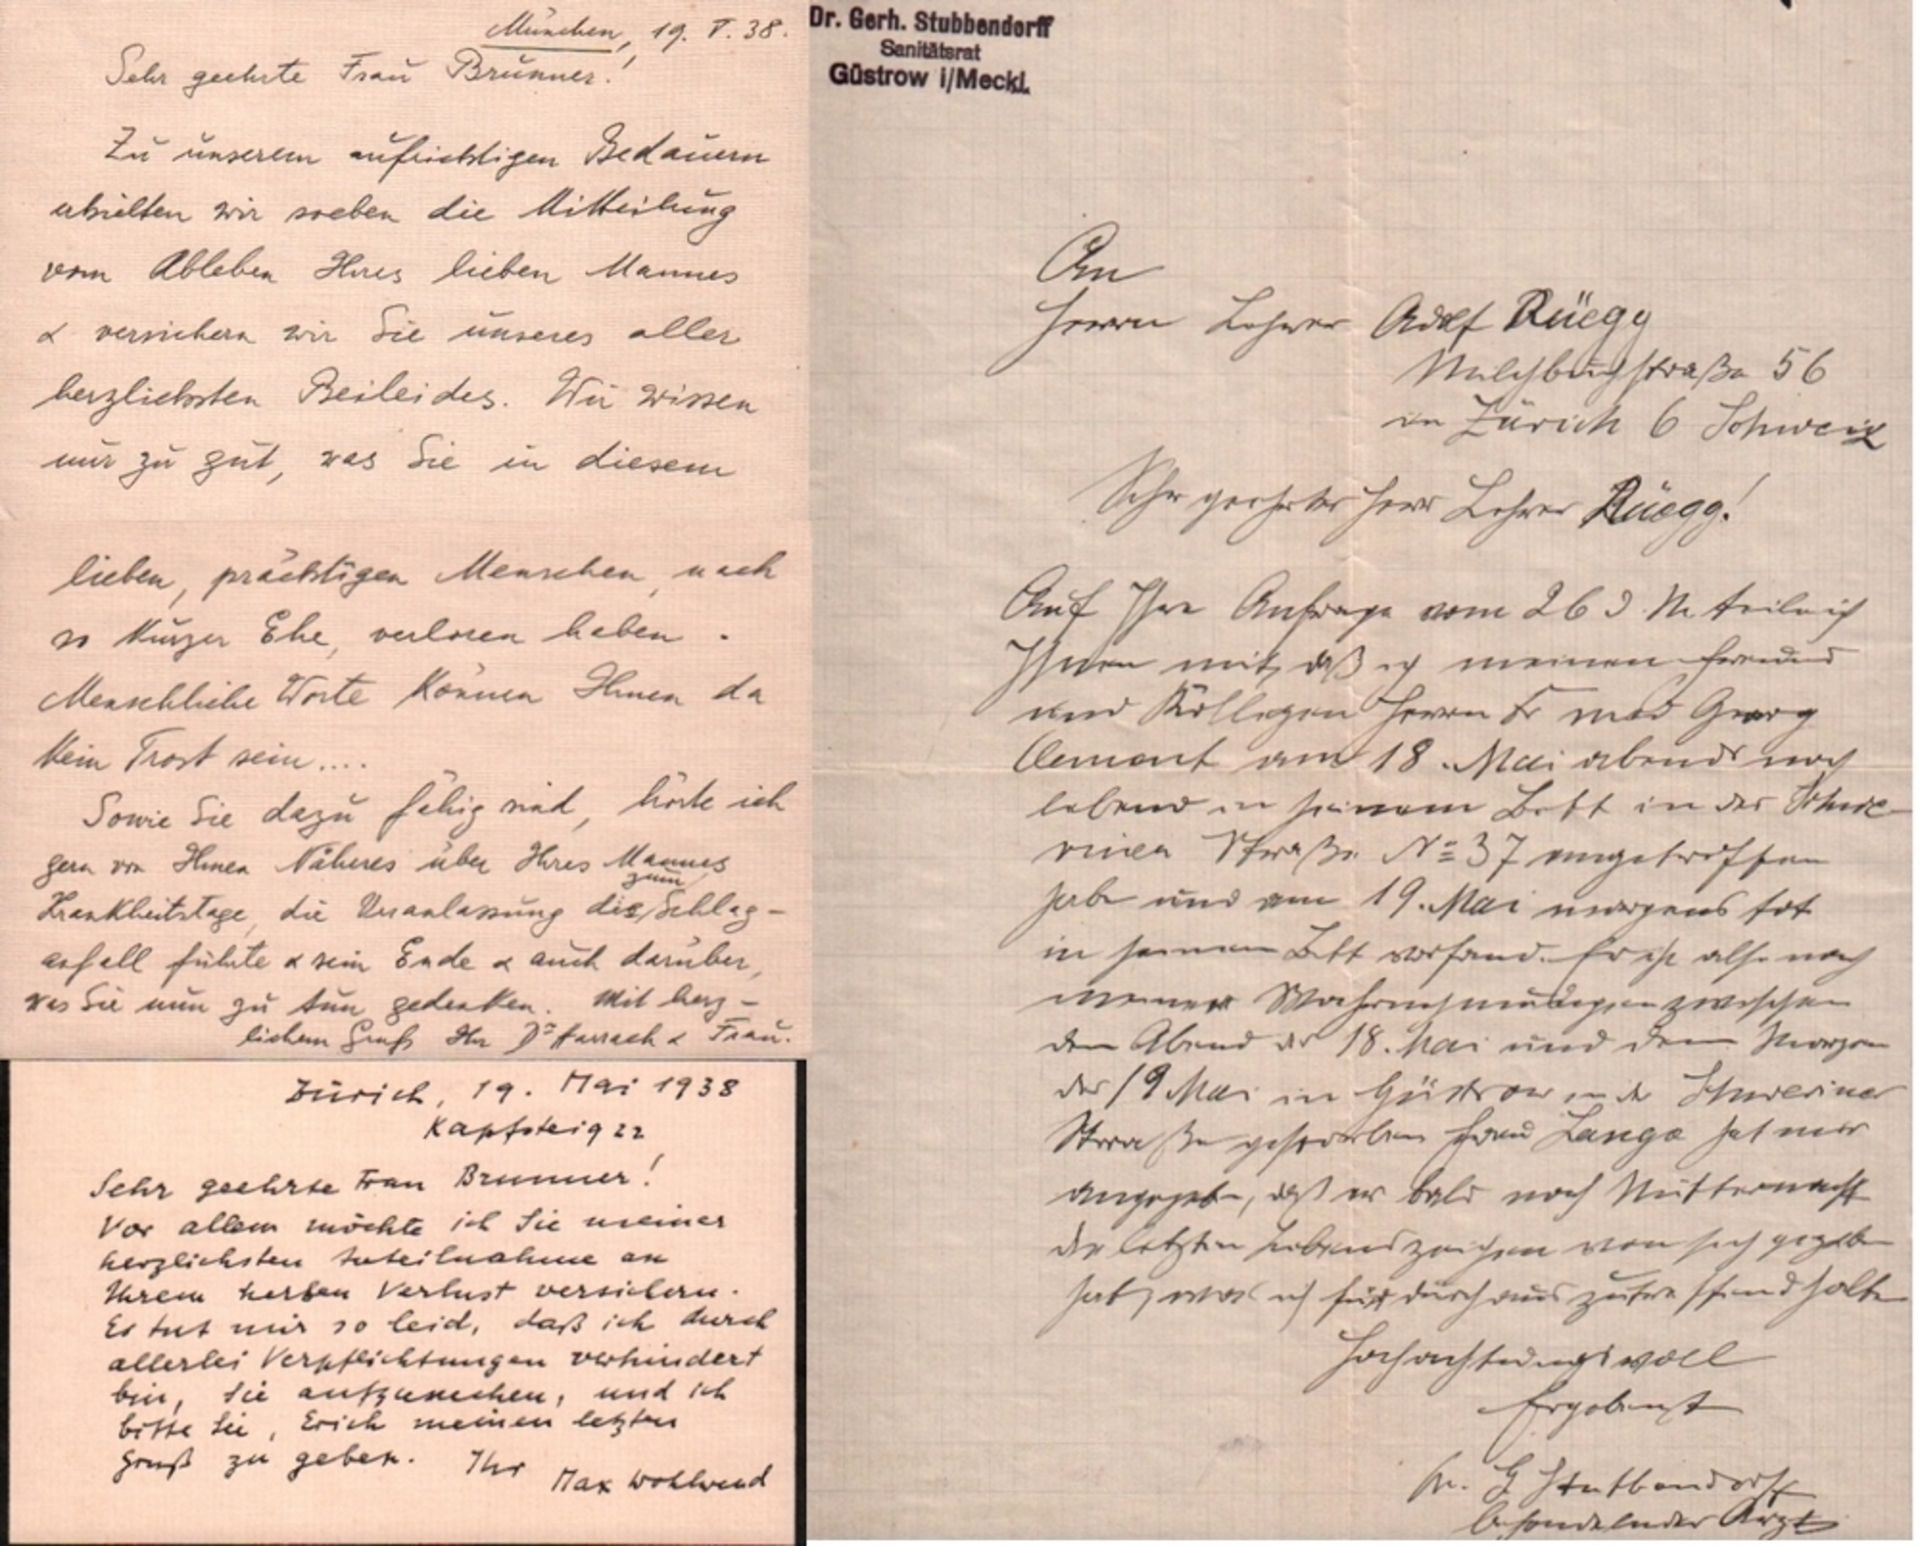 München, 19. V. 38.
Sehr geehrte Frau Brunner!
Zu unserem aufrichtigen Bedauern
erhielten wir soeben die Mitteilung
vom Ableben Ihres lieben Mannes
& versichern wir Sie unseres aller
herzlichsten Beileides. Wir wissen
nur zu gut, was Sie in diesem
lieben, prächtigen Menschen, nach
so kurzer Ehe, verloren haben.
Menschliche Worte können Ihnen da
kein Trost sein....
Sowie Sie dazu fähig sind, hörte ich
gern von Ihnen Näheres über Ihres Mannes
Krankheitstage, die Veranlassung die zum Schlag-
anfall führte & sein Ende & auch darüber,
was Sie nun zu tun gedenken. Mit herz-
lichem Gruß Ihr Dr Harrach & Frau.
Zürich, 19. Mai 1938
Kapfsteig 22
Sehr geehrte Frau Brunner!
Vor allem möchte ich Sie meiner
herzlichsten Anteilnahme an
Ihrem herben Verlust versichern.
Es tut mir so leid, daß ich durch
allerlei Verpflichtungen verhindert
bin, Sie aufzusuchen, und ich
bitte Sie, Erich meinen letzten
Gruß zu geben. Ihr
Max Wohlwend
Dr. Gerh. Stubbendorff
Sanitätsrat
Güstrow i/Meckl.
An
Herrn Lehrer Adolf Rüegg
Milchbuckstraße 56
in Zürich 6 Schweiz
Sehr geehrter Herr Lehrer Rüegg!
Auf Ihre Anfrage vom 26 d. M. teile ich
Ihnen mit, daß ich meinen Freund
und Kollegen Herrn Dr med Georg
Clement am 18. Mai abends noch
lebend in seinem Bett in der Schwe-
riner Straße No 37 angetroffen
habe und am 19. Mai morgens tot
in seinem Bett vorfand. Er ist also nach
meiner Wahrnehmungen zwischen
dem Abend des 18. Mai und dem Morgen
des 19 Mai in Güstrow in der Schweriner
Straße gestorben Frau Lange hat mir
angegeben, daß er bald nach Mitternacht
die letzten Lebenszeichen von sich gegeben
hat, was ich für durchaus zutreffend halte
Hochachtungsvoll
Ergebenst
Dr. G Stubbendorff
behandelnder Arzt